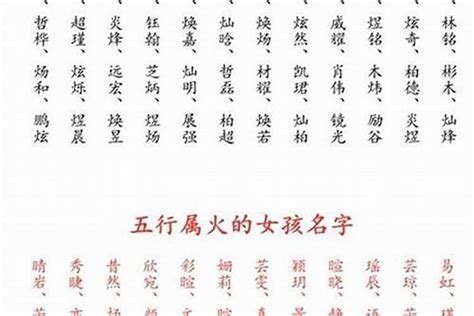 林铭、彬木、灿烽
炫奇、柏德、炎煜
煜铭、木炜、励谷
威耀、肖伟、镜光
炫然、凯珺、灿怡
焕炀、材耀、焕若
灿晗、哲磊、柏超
焕嘉、灿明、展强
钰翰、芝炳、煜炀
炎烽、远宏、焕昱
超瑾、炫烁、煜晨
哲桦、炀和、鹏炫
五行属火的女孩名字
易虹、
芸琼、
瑶辰、
暄晓、
颖玥、
芸雯、
姗莉、
彩暄、
欣宛、
昔然、
秀睫、
晴岩、